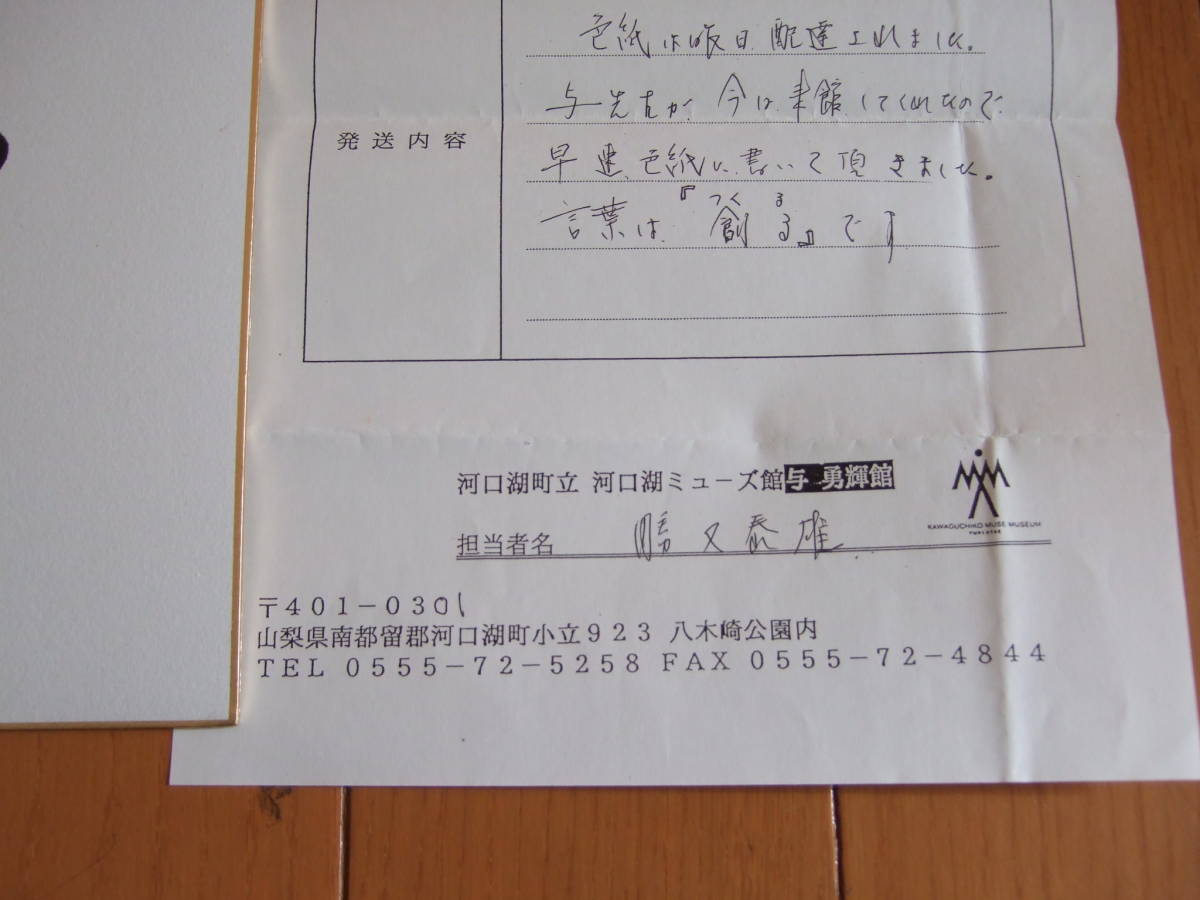 発送内容
色紙は昨日配達されました。
与先生が、今日来館してくれたので
早速、色紙に書いて頂きました。
つくる
言葉は『創る』です
河口湖町立 河口湖ミューズ館 与 勇輝館
KAWAGUCHIKO MUSE MUSEUM
担当者名 勝又泰雄
〒401-0301
山梨県南都留郡河口湖町小立923 八木崎公園内
TEL 0555-72-5258 FAX 0555-72-4844